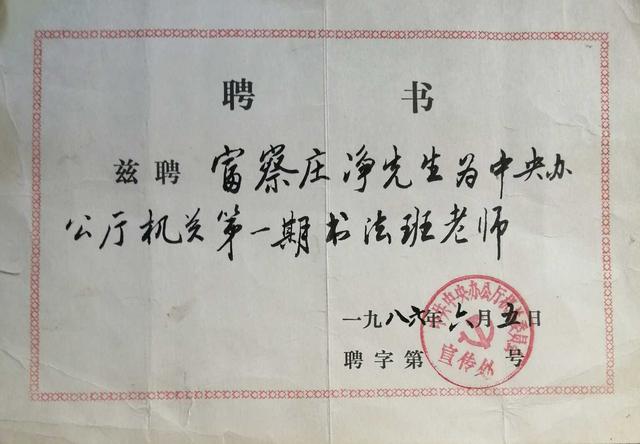 聘书
兹聘 富察庄净先生为中央办
公厅机关第一期书法班老师
一九八六年六月五日
聘字第 号
中共中央办公厅机关委员会
宣传处